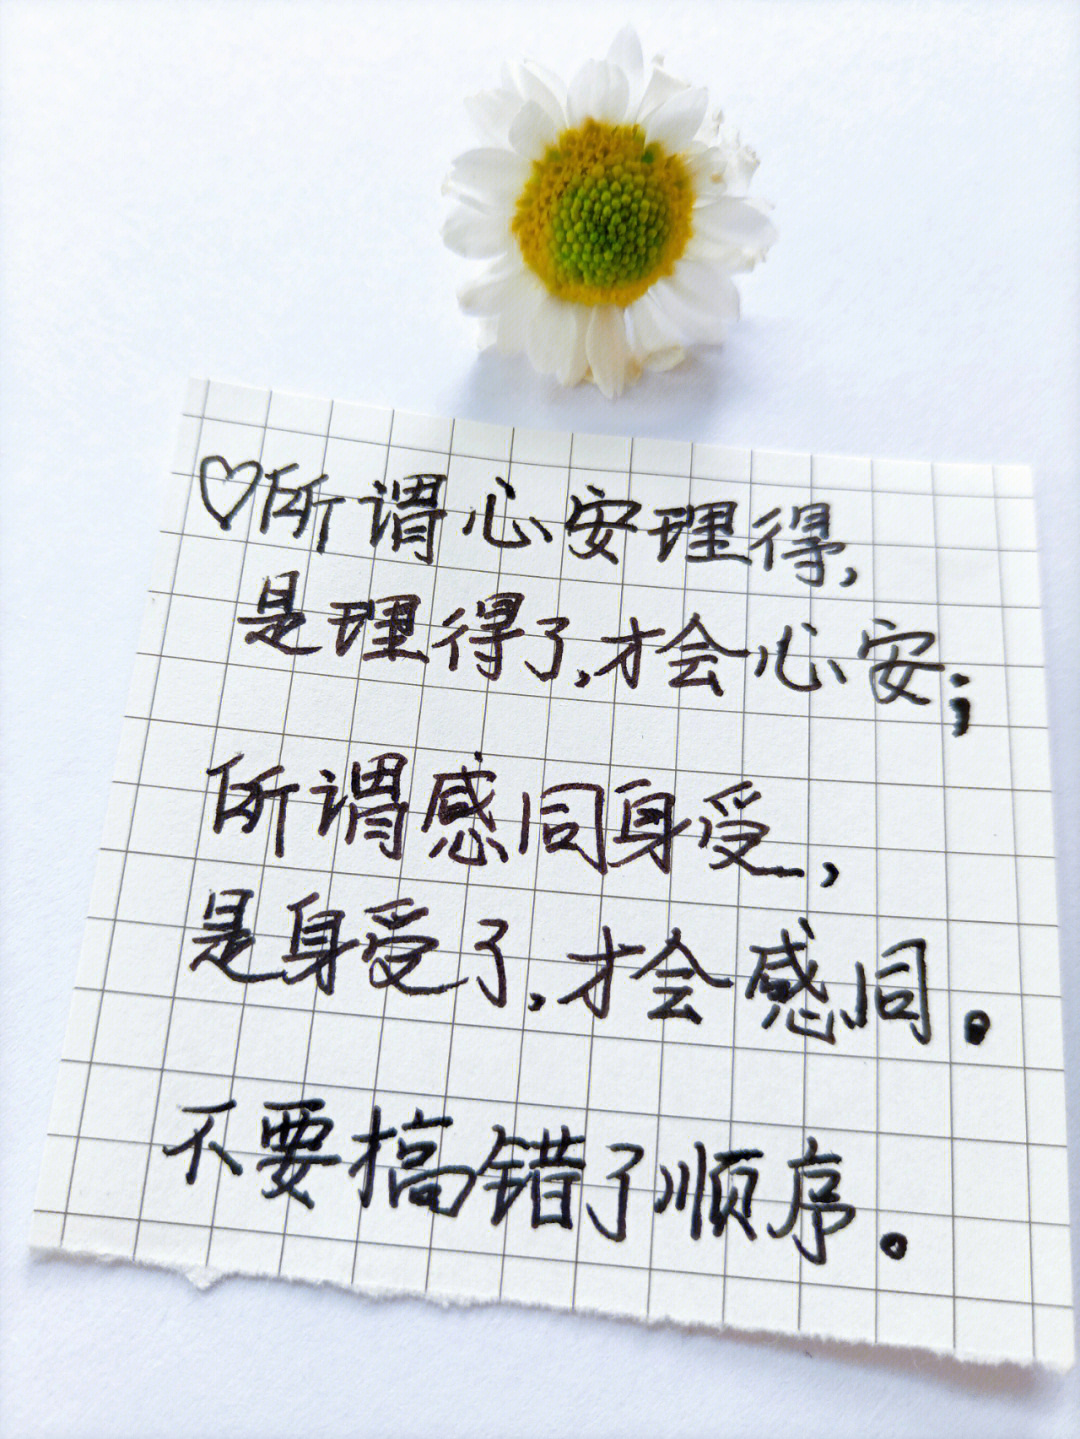 ♡所谓心安理得,
是理得了,才会心安;
所谓感同身受,
是身受了,才会感同。
不要搞错了顺序。